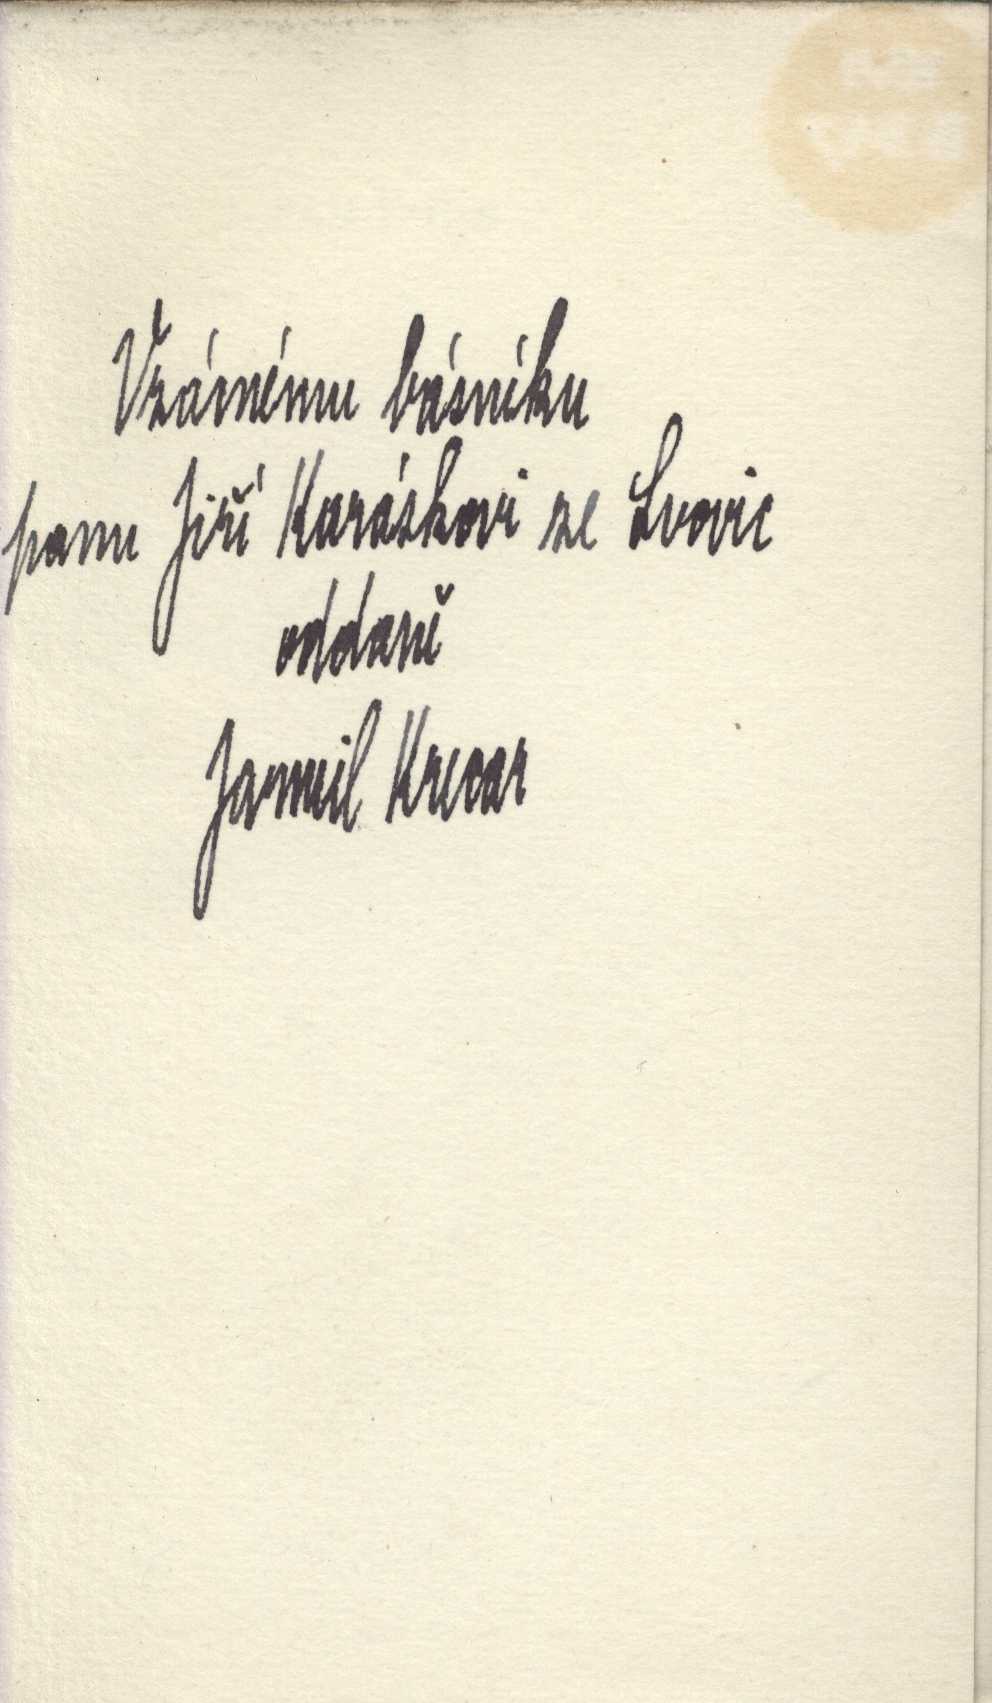 Vzácnému básníku
panu Jiří Karáskovi ze Lvovic
oddaně
Jarmil Krecar